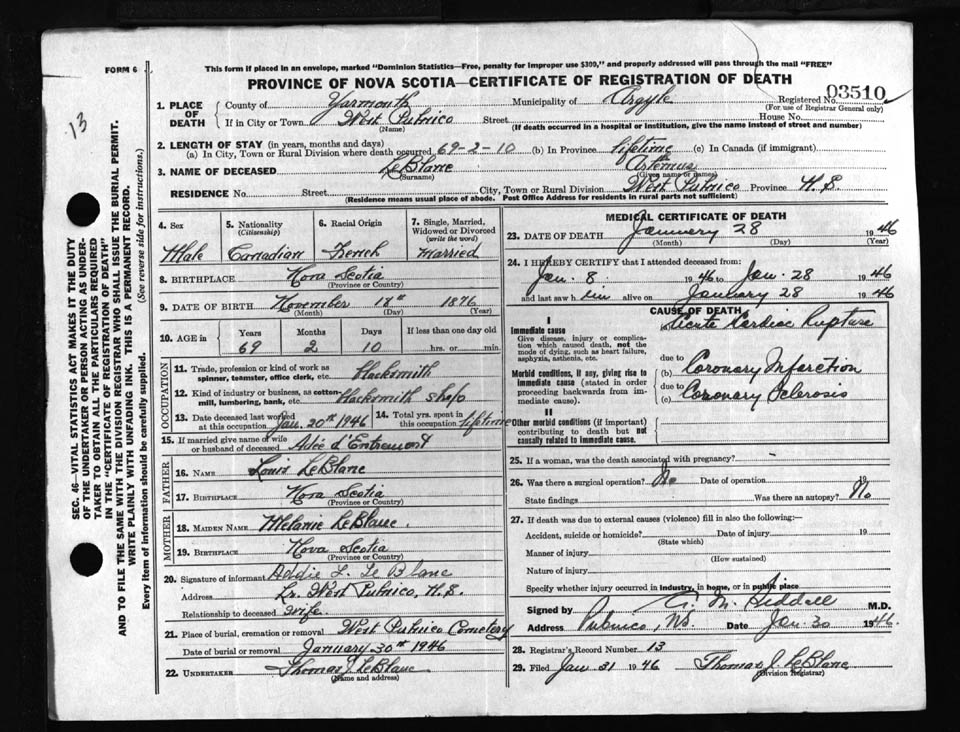 This form if placed in an envelope, marked "Dominion Statistics—Free, penalty for improper use $300," and properly addressed will pass through the mail "FREE"
FORM 6
PROVINCE OF NOVA SCOTIA—CERTIFICATE OF REGISTRATION OF DEATH
03510
13
1. PLACE OF DEATH County of Yarmouth Municipality of Argyle Registered No. (For use of Registrar General only)
If in City or Town West Pubnico (Name) Street House No.
(If death occurred in a hospital or institution, give the name instead of street and number)
2. LENGTH OF STAY (in years, months and days)
(a) In City, Town or Rural Division where death occurred 69-2-10 (b) In Province lifetime (c) In Canada (if immigrant)
3. NAME OF DECEASED LeBlanc (Surname) Artemus (Given name or names)
RESIDENCE No. Street City, Town or Rural Division West Pubnico Province N.S.
(Residence means usual place of abode. Post Office Address for residents in rural parts not sufficient)
4. Sex Male
5. Nationality (Citizenship) Canadian
6. Racial Origin French
7. Single, Married, Widowed or Divorced (write the word) Married
8. BIRTHPLACE Nova Scotia (Province or Country)
9. DATE OF BIRTH November (Month) 18th (Day) 1876 (Year)
10. AGE Years 69 Months 2 Days 10 If less than one day old hrs. or min.
OCCUPATION
11. Trade, profession or kind of work as spinner, teamster, office clerk, etc. Blacksmith
12. Kind of industry or business, as cotton mill, lumbering, bank, etc. Blacksmith shop
13. Date deceased last worked at this occupation Jan. 20th 1946
14. Total yrs. spent in this occupation lifetime
15. If married give name of wife or husband of deceased Adée d'Entremont
FATHER
16. NAME Louis LeBlanc
17. BIRTHPLACE Nova Scotia (Province or Country)
MOTHER
18. MAIDEN NAME Melanie LeBlanc
19. BIRTHPLACE Nova Scotia (Province or Country)
20. Signature of informant Addie L. Le Blanc
Address Lr. West Pubnico, N.S.
Relationship to deceased wife
21. Place of burial, cremation or removal West Pubnico Cemetery
Date of burial or removal January 30th 1946
22. UNDERTAKER Thomas J. LeBlanc (Name and address)
MEDICAL CERTIFICATE OF DEATH
23. DATE OF DEATH January 28 1946
(Month) (Day) (Year)
24. I HEREBY CERTIFY that I attended deceased from:
Jan. 8 1946 to Jan. 28 1946
and last saw him alive on January 28 1946
CAUSE OF DEATH
I
Immediate cause
Give disease, injury or complication which caused death, not the mode of dying, such as heart failure, asphyxia, asthenia, etc.
Acute Cardiac Rupture
Morbid conditions, if any, giving rise to immediate cause (stated in order proceeding backwards from immediate cause).
due to
(b) Coronary Infarction
due to
(c) Coronary Sclerosis
II
Other morbid conditions (if important) contributing to death but not causally related to immediate cause.
25. If a woman, was the death associated with pregnancy?
26. Was there a surgical operation? No Date of operation 19
State findings Was there an autopsy? No
27. If death was due to external causes (violence) fill in also the following:—
Accident, suicide or homicide? (State which) Date of injury 19
Manner of injury (How sustained)
Nature of injury
Specify whether injury occurred in industry, in home, or in public place
Signed by G. M. Siddall M.D.
Address Pubnico, NS. Date Jan. 30 1946.
28. Registrar's Record Number 13
29. Filed Jan 31 1946 Thomas J. LeBlanc (Division Registrar)
SEC. 46—VITAL STATISTICS ACT MAKES IT THE DUTY
OF THE UNDERTAKER OR PERSON ACTING AS UNDER-
TAKER TO OBTAIN ALL THE PARTICULARS REQUIRED
IN THE "CERTIFICATE OF REGISTRATION OF DEATH"
AND TO FILE THE SAME WITH THE DIVISION REGISTRAR WHO SHALL ISSUE THE BURIAL PERMIT.
WRITE PLAINLY WITH UNFADING INK. THIS IS A PERMANENT RECORD.
Every item of information should be carefully supplied. (See reverse side for instructions.)